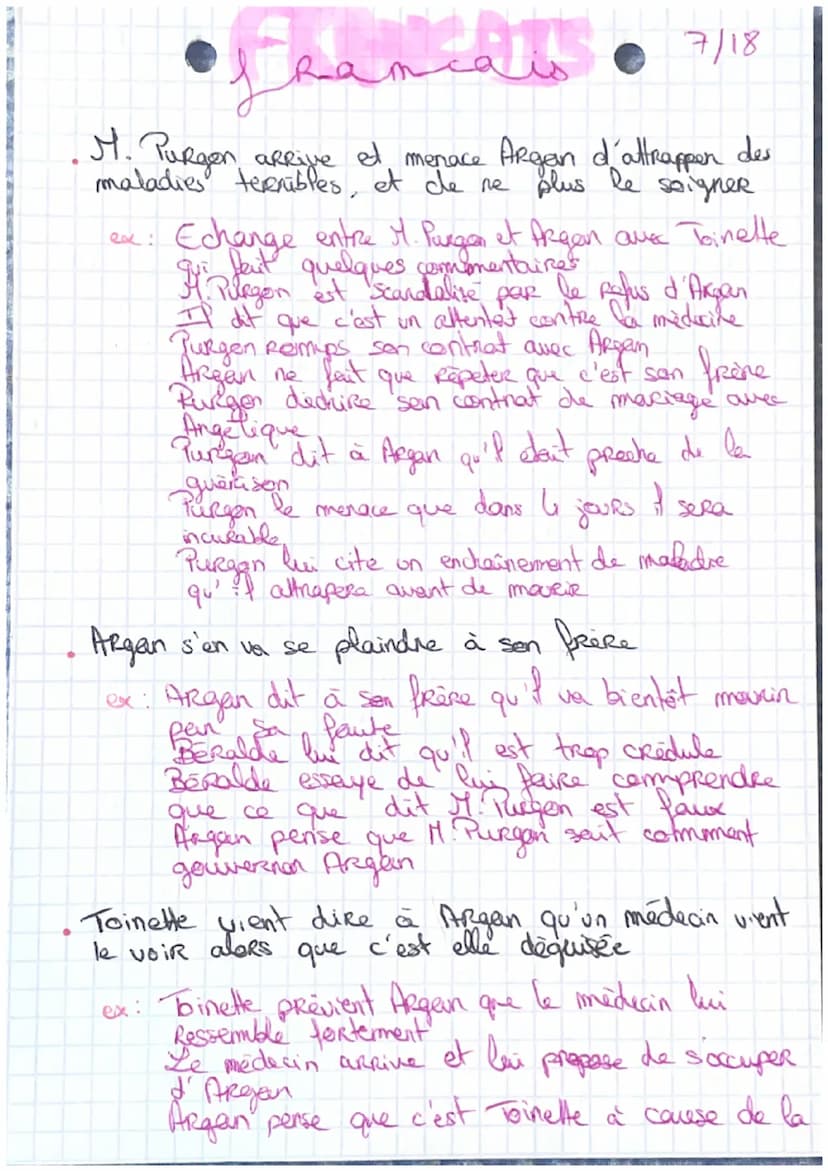 FRANCAIS
francais
7/18
. M. Purgon arrive et menace Argan d'attrapper des
maladies terribles, et de ne plus le soigner
ex : Echange entre M. Purgon et Argan avec Toinette
qui fait quelques commentaires
M. Purgon est scandalisé par le refus d'Argan
Il dit que c'est un attentat contre la médecine
Purgon romps son contrat avec Argan
Argan ne fait que répéter que c'est son frère
Purgon déchire son contrat de mariage avec
Angélique
Purgon dit à Argan qu'il était proche de la
guérison
Purgon le menace que dans 4 jours il sera
incurable
Purgon lui cite un enchaînement de maladie
qu'il attrapera avant de mourir
. Argan s'en va se plaindre à son frère
ex : Argan dit à son frère qu'il va bientôt mourir
par sa faute
Béralde lui dit qu'il est trop crédule
Béralde essaye de lui faire comprendre
que ce que dit M. Purgon est faux
Argan pense que M. Purgon sait comment
gouverner Argan
. Toinette vient dire à Argan qu'un médecin vient
le voir alors que c'est elle déguisée
ex : Toinette prévient Argan que le médecin lui
ressemble fortement
Le médecin arrive et lui propose de s'occuper
d'Argan
Argan pense que c'est Toinette à cause de la